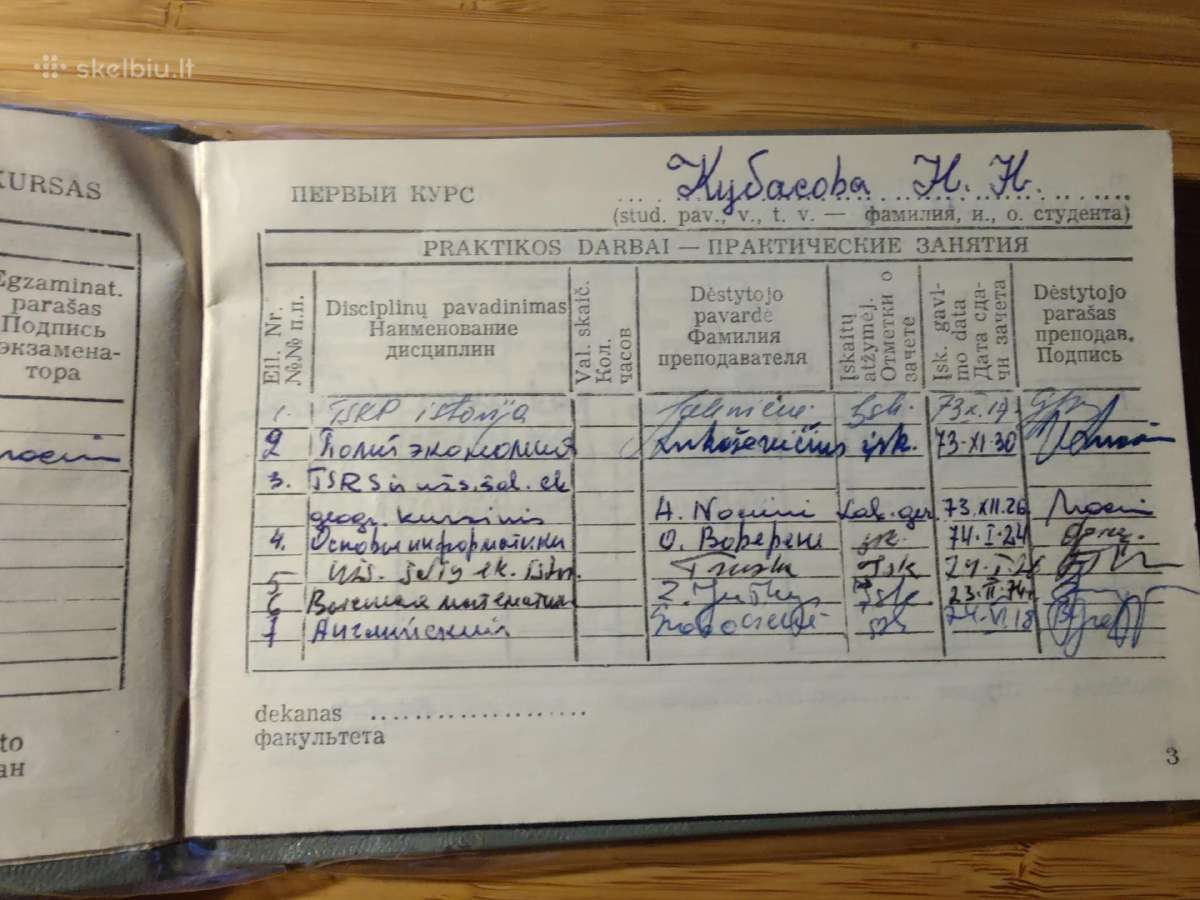 skelbiu.lt
KURSAS
Egzaminat.
parašas
Подпись
экзамена-
тора
to
ан
ПЕРВЫЙ КУРС Кубасова Н. Н.
(stud. pav., v., t. v. — фамилия, и., о. студента)
PRAKTIKOS DARBAI — ПРАКТИЧЕСКИЕ ЗАНЯТИЯ
Eil. Nr.
№№ п.п.
Disciplinų pavadinimas
Наименование
дисциплин
Val. skaič.
Кол.
часов
Dėstytojo
pavardė
Фамилия
преподавателя
Įskaitų
atžymėj.
Отметки о
зачете
Įsk. gavi-
mo data
Дата сда-
чи зачета
Dėstytojo
parašas
преподав.
Подпись
1. TSKP istorija 73.X.17
2 Полит экономия įsk. 73.XI.30
3. TSRS ir užs. šal. ek
geogr. kursinis 73.XII.26
4. Основы информатики О. 74.I.24
5 Užs. ek. Įsk
6 Высшая математика Įsk 23.II.74
7 Английский 74.VI.18
dekanas
факультета
3